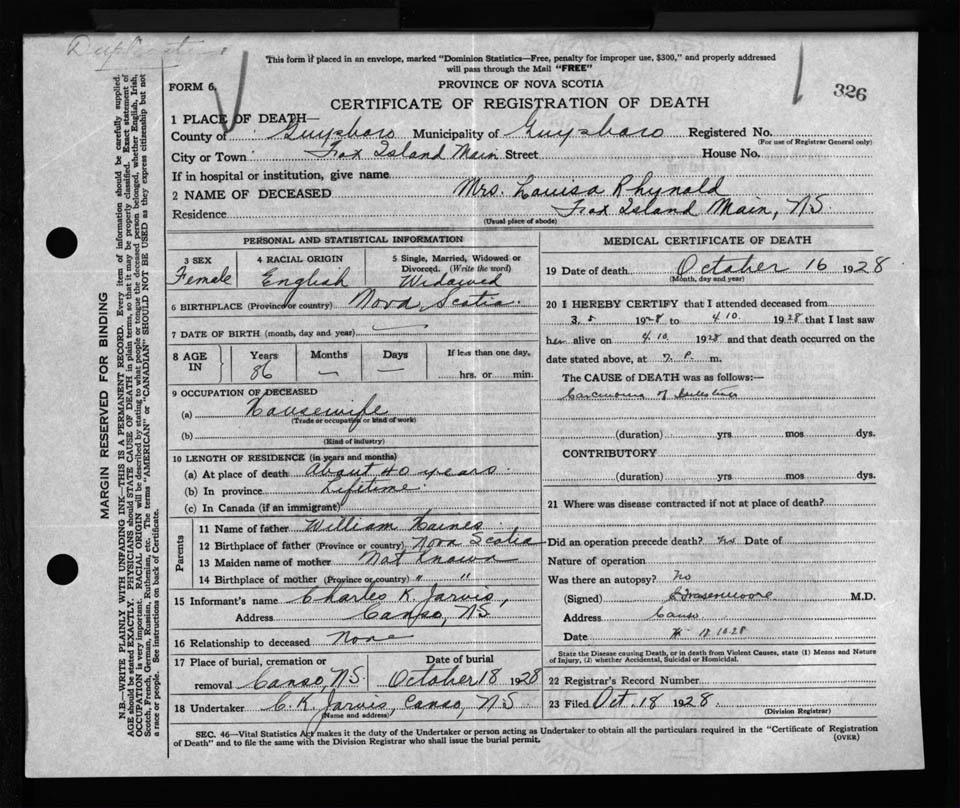 Duplicate
This form if placed in an envelope, marked "Dominion Statistics—Free, penalty for improper use, $300," and properly addressed
will pass through the Mail "FREE"
FORM 6.
PROVINCE OF NOVA SCOTIA
326
CERTIFICATE OF REGISTRATION OF DEATH
1 PLACE OF DEATH—
County of Guysboro Municipality of Guysboro Registered No.
(For use of Registrar General only)
City or Town Fox Island Main Street House No.
If in hospital or institution, give name
2 NAME OF DECEASED Mrs. Louisa Rhynold
Residence Fox Island Main, N.S.
(Usual place of abode)
PERSONAL AND STATISTICAL INFORMATION
3 SEX Female
4 RACIAL ORIGIN English
5 Single, Married, Widowed or Divorced. (Write the word) Widowed
6 BIRTHPLACE (Province or country) Nova Scotia
7 DATE OF BIRTH (month, day and year) —
8 AGE IN Years 86 Months — Days — If less than one day, hrs. or min.
9 OCCUPATION OF DECEASED
(a) Housewife
(Trade or occupation or kind of work)
(b)
(Kind of industry)
10 LENGTH OF RESIDENCE (in years and months)
(a) At place of death About 40 years
(b) In province Lifetime
(c) In Canada (if an immigrant)
Parents
11 Name of father William Haines
12 Birthplace of father (Province or country) Nova Scotia
13 Maiden name of mother Not Known
14 Birthplace of mother (Province or country) " "
15 Informant's name Charles K. Jarvis,
Address Canso, N.S
16 Relationship to deceased None
17 Place of burial, cremation or removal Canso, N.S. Date of burial October 18 1928
18 Undertaker C. K. Jarvis, Canso, N.S
(Name and address)
MEDICAL CERTIFICATE OF DEATH
19 Date of death October 16 1928
(Month, day and year)
20 I HEREBY CERTIFY that I attended deceased from
3. 5 1928 to 4.10. 1928 that I last saw
her alive on 4.10. 1928 and that death occurred on the
date stated above, at P. m.
The CAUSE of DEATH was as follows:—
Carcinoma of Intestines
(duration) yrs mos dys.
CONTRIBUTORY
(duration) yrs. mos. dys.
21 Where was disease contracted if not at place of death?
Did an operation precede death? No Date of
Nature of operation
Was there an autopsy? No
(Signed) M.D.
Address Canso
Date 10.28
State the Disease causing Death, or in death from Violent Causes, state (1) Means and Nature
of Injury, (2) whether Accidental, Suicidal or Homicidal.
22 Registrar's Record Number
23 Filed Oct. 18 1928
(Division Registrar)
SEC. 46—Vital Statistics Act makes it the duty of the Undertaker or person acting as Undertaker to obtain all the particulars required in the "Certificate of Registration
of Death" and to file the same with the Division Registrar who shall issue the burial permit.
(OVER)
MARGIN RESERVED FOR BINDING
N.B.—WRITE PLAINLY WITH UNFADING INK—THIS IS A PERMANENT RECORD. Every item of information should be carefully supplied.
AGE should be stated EXACTLY. PHYSICIANS should STATE CAUSE OF DEATH in plain terms, so that it may be properly classified. Exact statement of
OCCUPATION is very important. RACIAL ORIGIN will be described by stating to what people or tongue the deceased person belonged, whether English, Irish,
Scotch, French, German, Russian, Ruthenian, etc. The terms "AMERICAN" or "CANADIAN" SHOULD NOT BE USED as they express citizenship but not
a race or people. See instructions on back of Certificate.